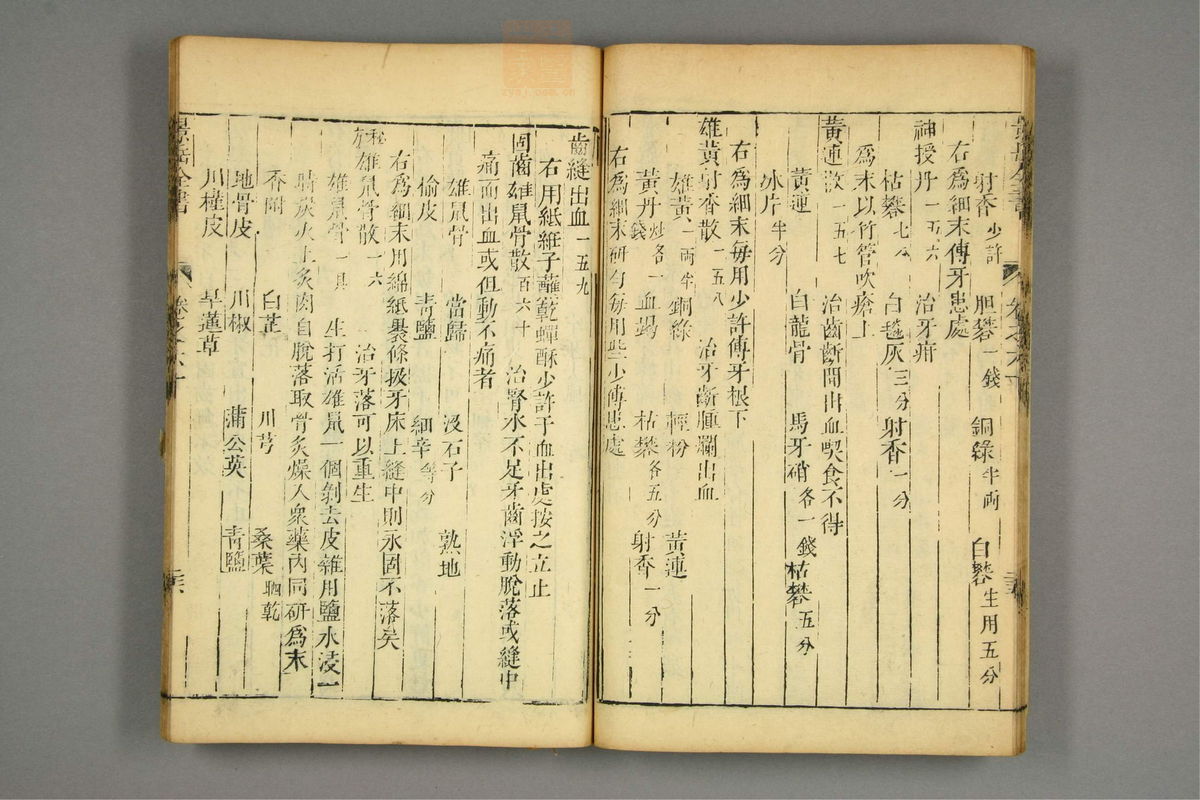 景岳全書 卷之六十
射香少許 胆礬一錢 銅綠半両 白礬生用五分
右為細末傅牙患處
神授丹一五六 治牙疳
枯礬七分 白毯灰三分 射香一分
為末以竹管吹瘡上
黃連散一五七 治齒齗間出血喫食不得
黃連 白龍骨 馬牙硝各一錢 枯礬五分
氷片半分
右為細末每用少許傅牙根下
雄黃射香散一五八 治牙齗腫爛出血
雄黃一両半 銅綠 輕粉 黃連
黃丹炒各一錢 血竭 枯礬各五分 射香一分
右為細末研勻每用些少傅患處
齒縫出血一五九
右用紙絍子蘸乾蟬酥少許于血出處按之立止
固齒雄鼠骨散百六十 治腎水不足牙齒浮動脫落或縫中
痛而出血或但動不痛者
雄鼠骨 當歸 没石子 熟地
榆皮 青鹽 細辛等分
右為細末用綿紙裹條扱牙床上縫中則永固不落矣
秘方雄鼠骨散一六 治牙落可以重生
雄鼠骨一具 生打活雄鼠一個剝去皮雜用鹽水浸一
時炭火上炙肉自脫落取骨炙燥入衆藥內同研為末
香附 白芷 川芎 桑葉晒乾
地骨皮 川椒 蒲公英 青鹽
川槿皮 旱蓮草
景岳全書 卷之六十